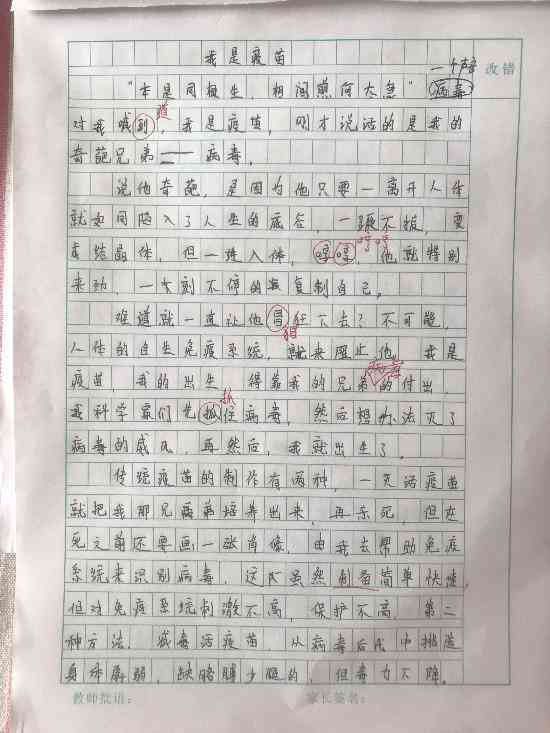 我是疫苗
一个声音 改错
“本是同根生，相间煎何太急”病毒
对我喊到道，我是疫苗，刚才说话的是我的
奇葩兄弟——病毒。
说他奇葩，是因为他只要一离开人体
就如同陷入了人生的底谷，一蹶不振，变
成结晶体，但一进入体，哼哼，他就特别
来劲，一个刻不停的复制自己。
难道就一直让他狂下去？不可能，
人体的自生免疫系统，就来阻止他，我是
疫苗，我的出生，得靠我的兄弟的付出，
我科学家们先抓住病毒，然后想办法灭了
病毒的威风，再然后，我就出生了。
传统疫苗的制作有两种，一灭活疫苗
就把我那兄弟培养出来，再杀死，但在
死之前还要画一张肖像，由我去帮助免疫
系统来识别病毒，这虽然制备简单快速，
但对免疫系统刺激不高，保护不高，第二
种方法，减毒活疫苗，从病毒后代中挑选
身体孱弱，缺胳膊少腿的，但毒力不降。
教师批语： 家长签名：